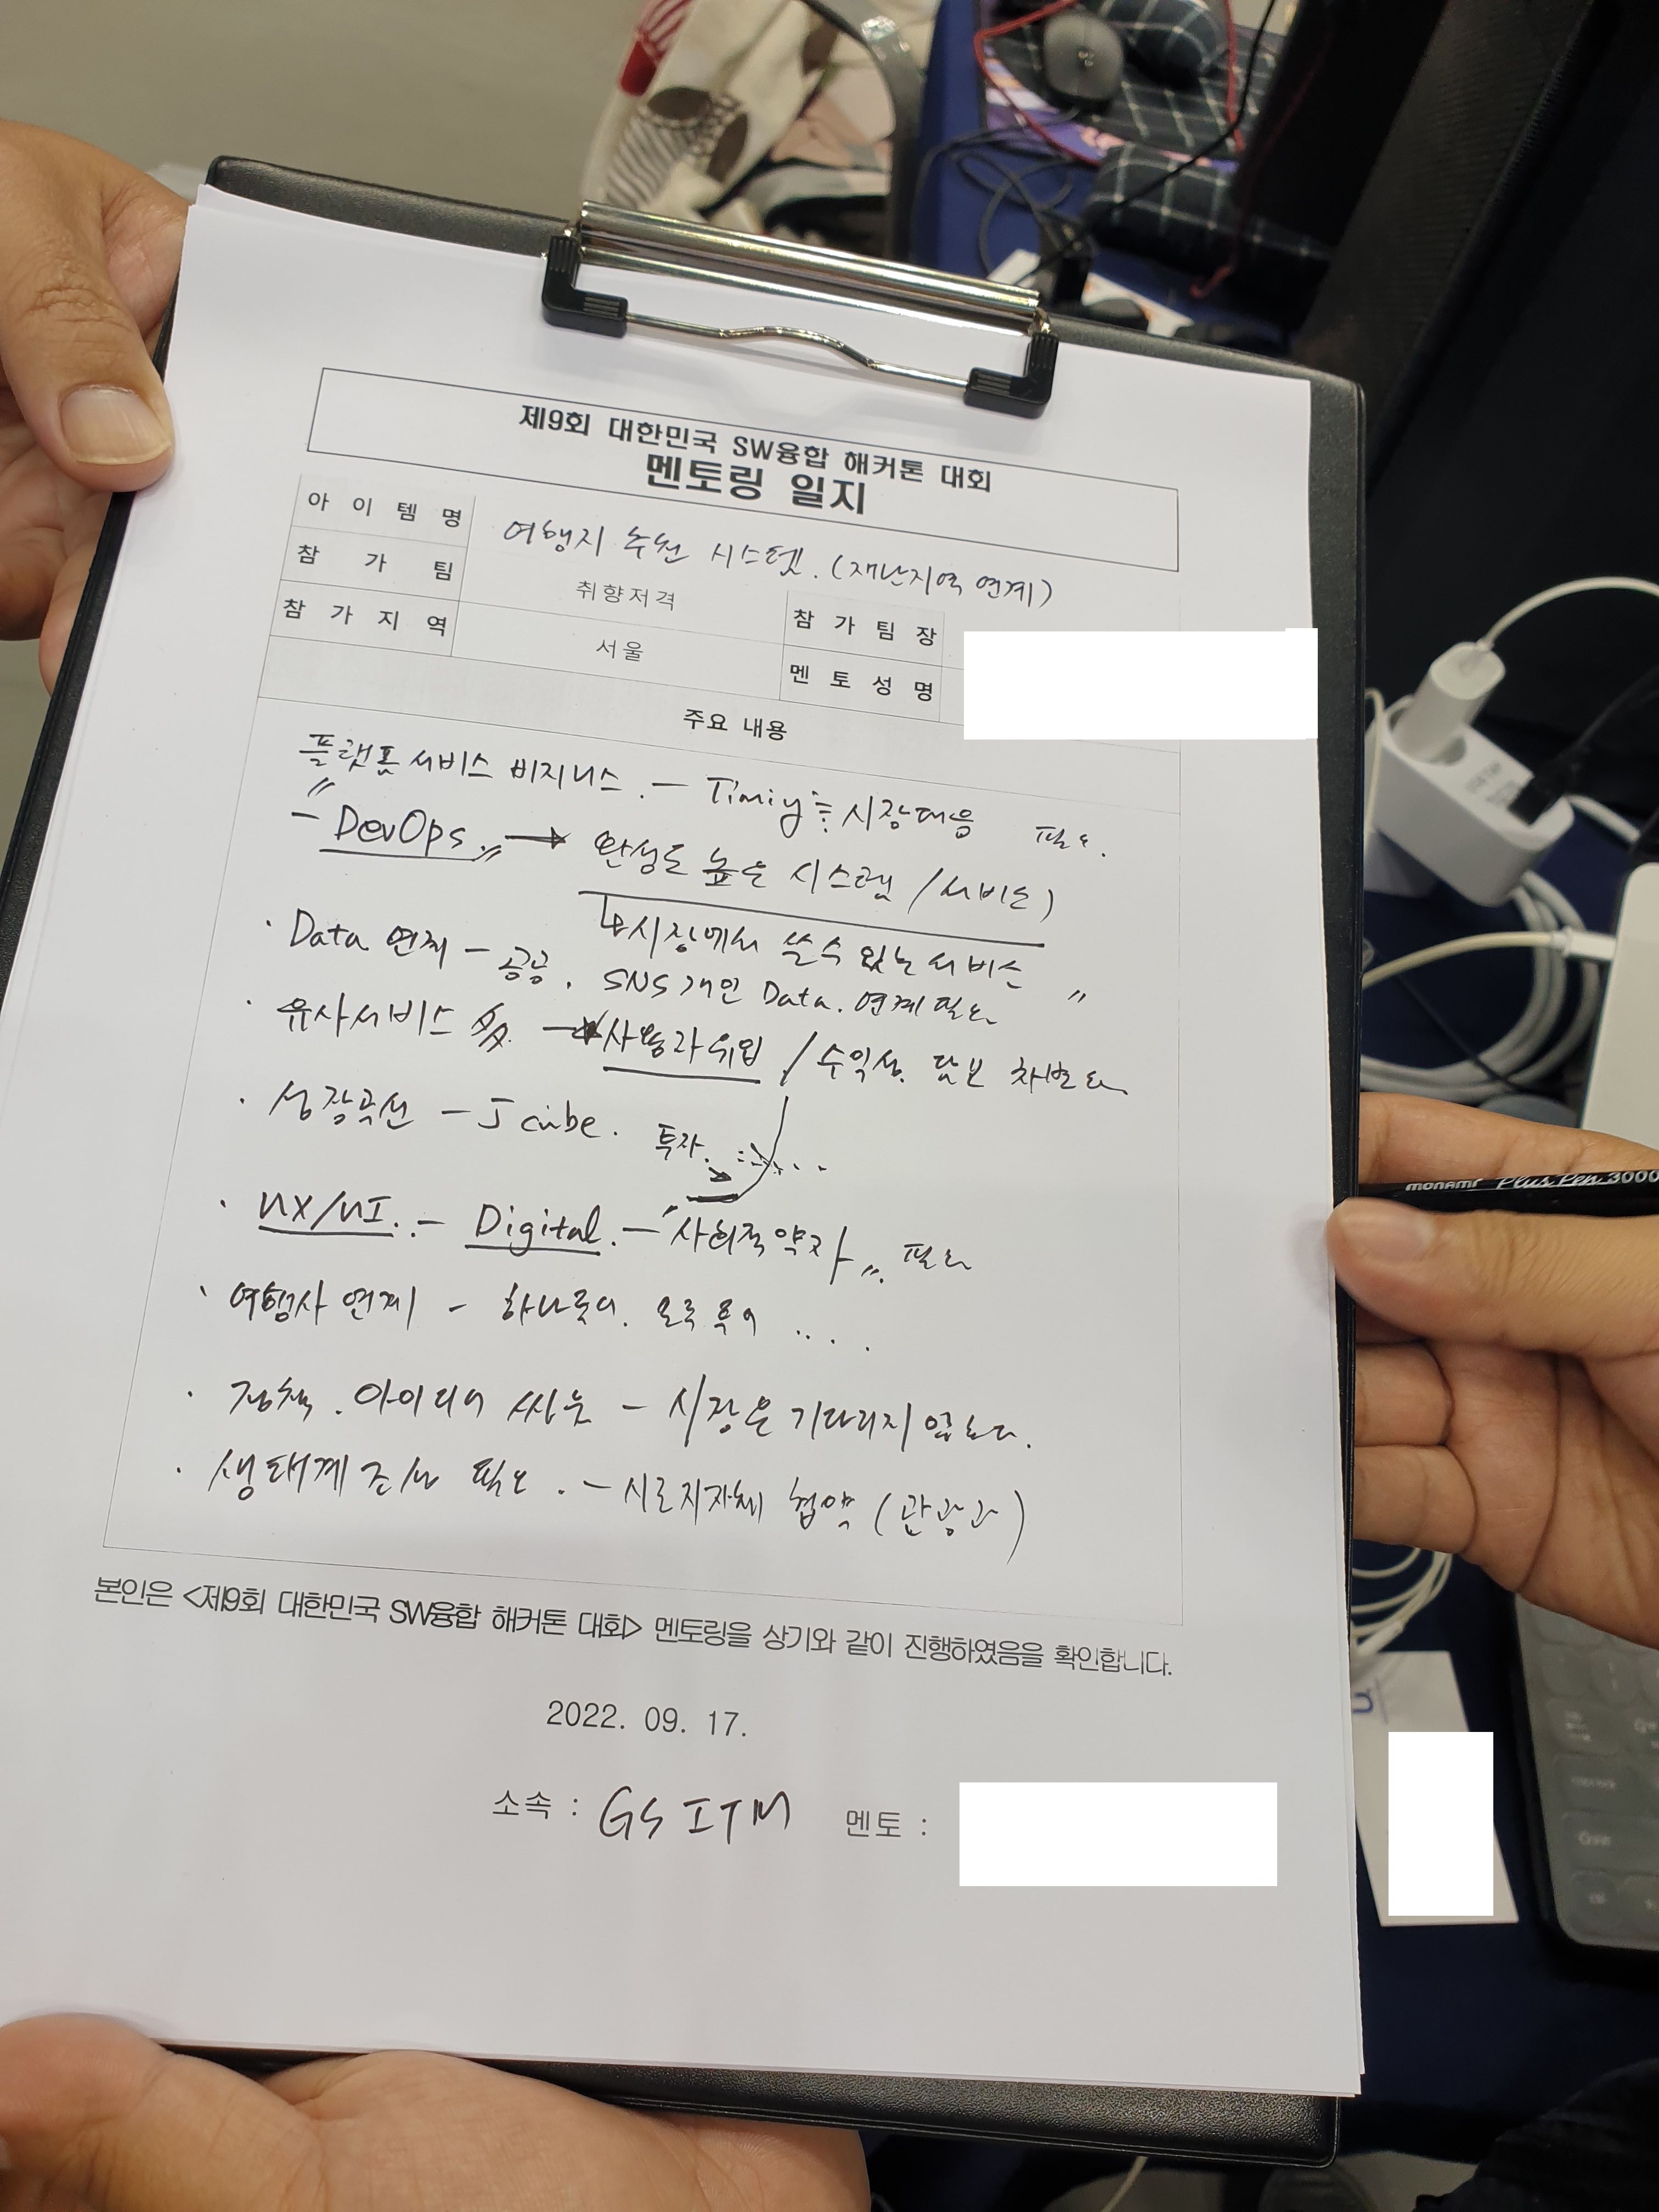 제9회 대한민국 SW융합 해커톤 대회
멘토링 일지
아이템명 여행지 추천 시스템. (재난지역 연계)
참가팀 취향저격 참가팀장
참가지역 서울 멘토성명
주요 내용
플랫폼 서비스 비지니스. - Timiy 시장대응 필요.
- DevOps. → 완성도 높은 시스템 / 서비스)
↳ 시장에서 쓸수 있는 서비스 〃
· Data 연계 - 공공. SNS 개인 Data. 연계 필요
· 유사서비스 多 → 사용자 유입 / 수익성. 담보 차별화
· 성장곡선 - J cube. 투자.
· UX/UI. - Digital. - "사회적 약자〃. 필요
· 여행사 연계 - 하나투어. ...
· 정책. 아이디어 싸움 - 시장은 기다리지 않는다.
· 생태계 조성 필요. - 시도지자체 협약 (관광과)
본인은 <제9회 대한민국 SW융합 해커톤 대회> 멘토링을 상기와 같이 진행하였음을 확인합니다.
2022. 09. 17.
소속 : GS ITM 멘토 :
monami Plus Pen 3000